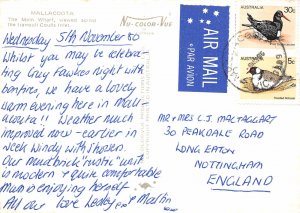 MALLACOOTA
The Main Wharf, viewed across
the tranquil Coota Inlet
NU-COLOR-VUE
Wednesday 5th November 80
Whilst you may be celebra-
ting Guy Fawkes night with
bonfires, we have a lovely
warm evening here in Mall-
acoota!! Weather much
improved now - earlier in
week windy with showers.
Our mudbrick "rustic" unit
is modern & quite comfortable
Mum is enjoying herself
All our love Lesley & Martin
AIR MAIL
PAR AVION
AUSTRALIA
30c
AUSTRALIA
5c
MR & MRS C.J. MACTAGGART
30 PEAKDALE ROAD
LONG EATON
NOTTINGHAM
ENGLAND